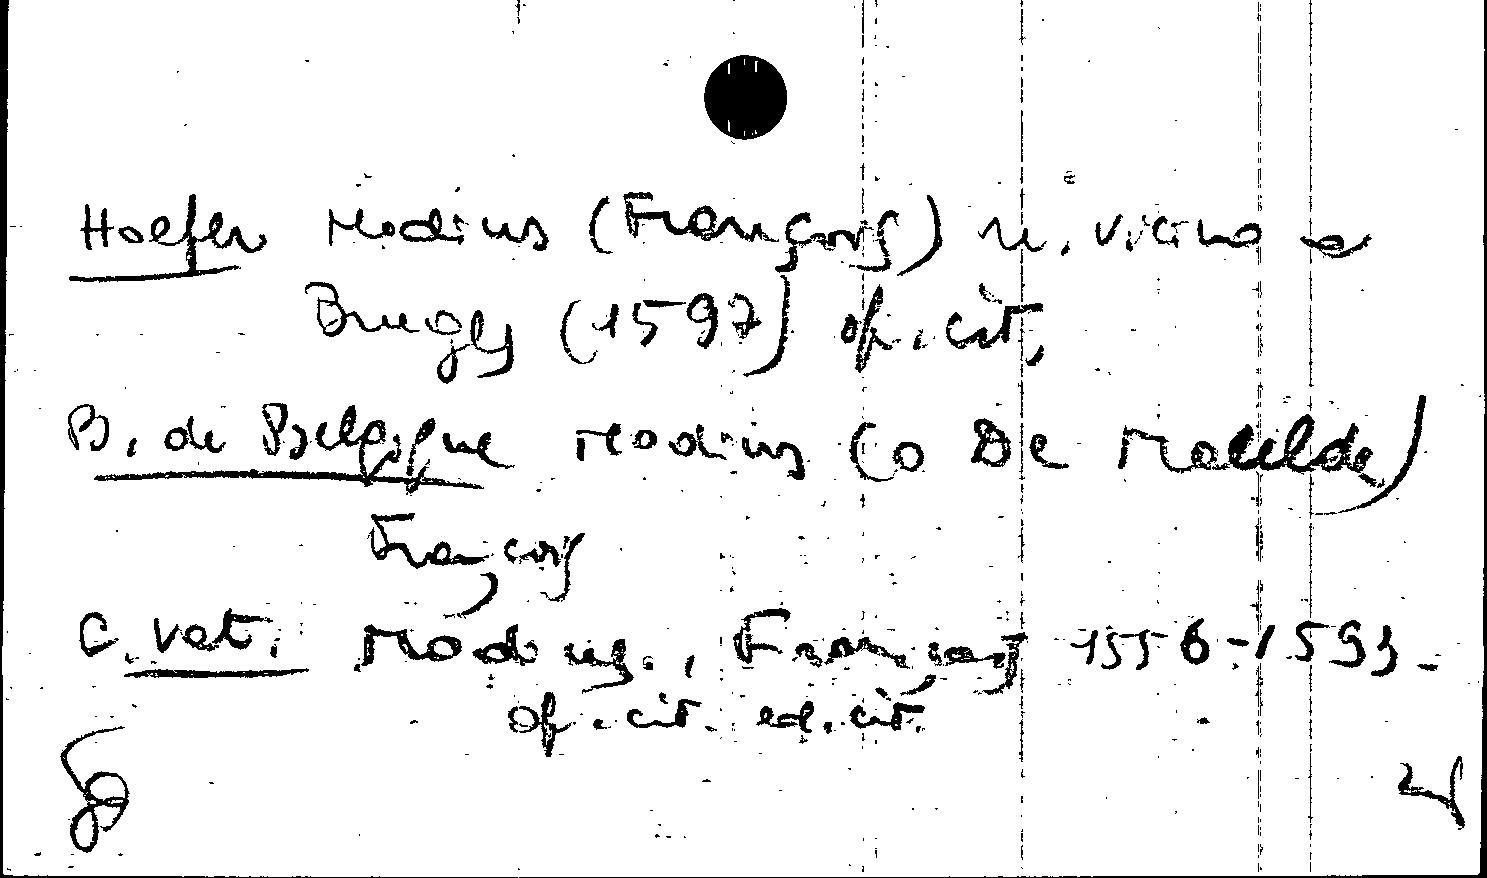 Hoefer Modius (François) n. vicino a
Bruges (1597) op. cit.
B. de Belgique Modius (o De Maulde)
François
C. Vat. Modius., François 1556-1593 -
op. cit. ed. cit.